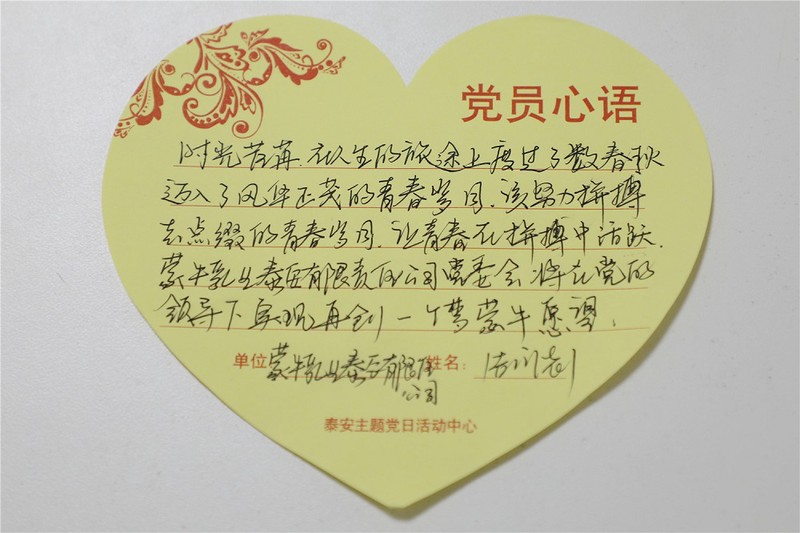 党员心语
时光荏苒.在人生的旅途上度过了数春秋
迈入了风华正茂的青春岁月.该努力拼搏
去点缀的青春岁月.让青春在拼搏中活跃.
蒙牛乳业泰安有限责任公司党委会将在党的
领导下实现再创一个梦蒙牛愿望.
单位 蒙牛乳业泰安有限责任 姓名:
公司
泰安主题党日活动中心